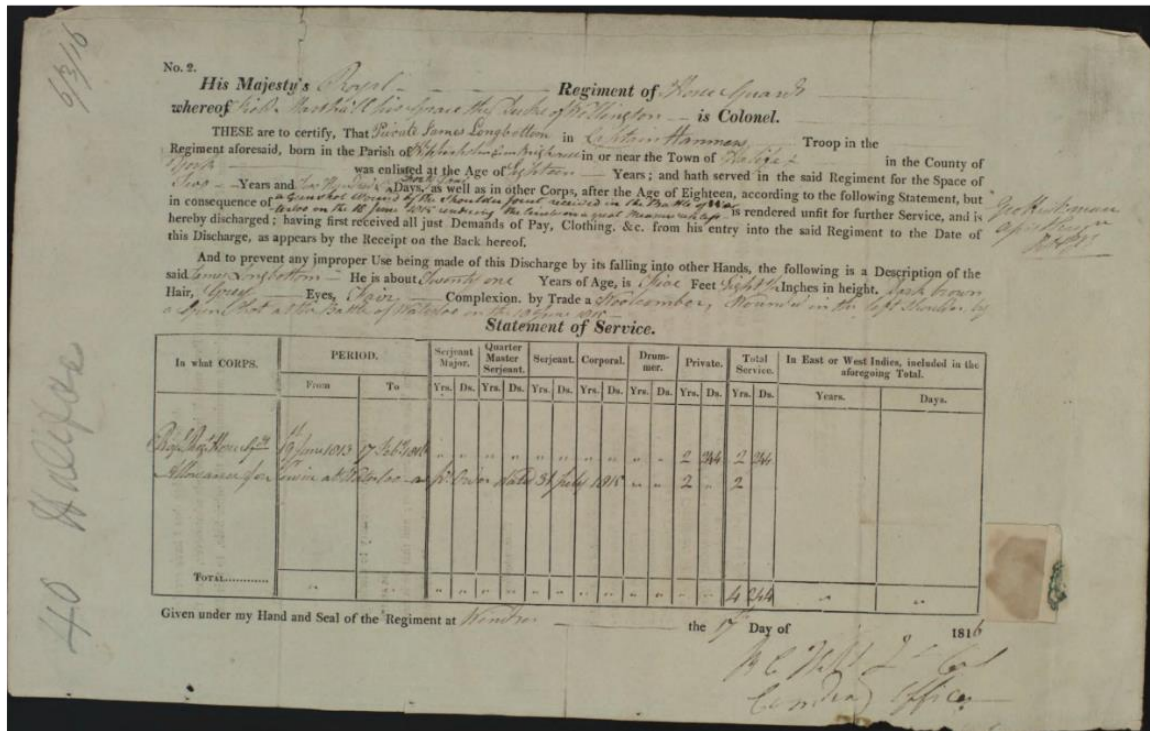 6/3/16
No. 2.
His Majesty's Royal Regiment of Horse Guards
whereof Field Marshall his Grace the Duke of Wellington is Colonel.
THESE are to certify, That Private James Longbottom in Captain Troop in the
Regiment aforesaid, born in the Parish of in or near the Town of Halifax in the County of
York was enlisted at the Age of Eighteen Years; and hath served in the said Regiment for the Space of
Two Years and Two Hundred Days, as well as in other Corps, after the Age of Eighteen, according to the following Statement, but
in consequence of a Gunshot Wound of the Shoulder joint received in the Battle of Wa
terloo on the 18 June 1815 rendering the in a great measure is rendered unfit for further Service, and is
hereby discharged; having first received all just Demands of Pay, Clothing, &c. from his entry into the said Regiment to the Date of
this Discharge, as appears by the Receipt on the Back hereof.
And to prevent any improper Use being made of this Discharge by its falling into other Hands, the following is a Description of the
said James Longbottom He is about Twenty one Years of Age, is Five Feet Eight Inches in height. Dark brown
Hair, Grey Eyes, Fair Complexion. by Trade a Woolcomber, Wounded in the left Shoulder by
a Gun Shot at the Battle of Waterloo on the June 1815
Statement of Service.
In what CORPS. PERIOD. Serjeant Major. Quarter Master Serjeant. Serjeant. Corporal. Drummer. Private. Total Service. In East or West Indies, included in the aforegoing Total.
From To Yrs. Ds. Yrs. Ds. Yrs. Ds. Yrs. Ds. Yrs. Ds. Yrs. Ds. Yrs. Ds. Years. Days.
June 1813 17 Feby 1816 " " " " " " " " " " 2 244 2 244
Allowance for Service at Waterloo as pr. Order dated 31 July 1815 " " 2 " 2
TOTAL............ " " " " " " " " " " " " " 4 244 " "
Given under my Hand and Seal of the Regiment at Windsor the 17 Day of 1816
Officer
40 Halifax